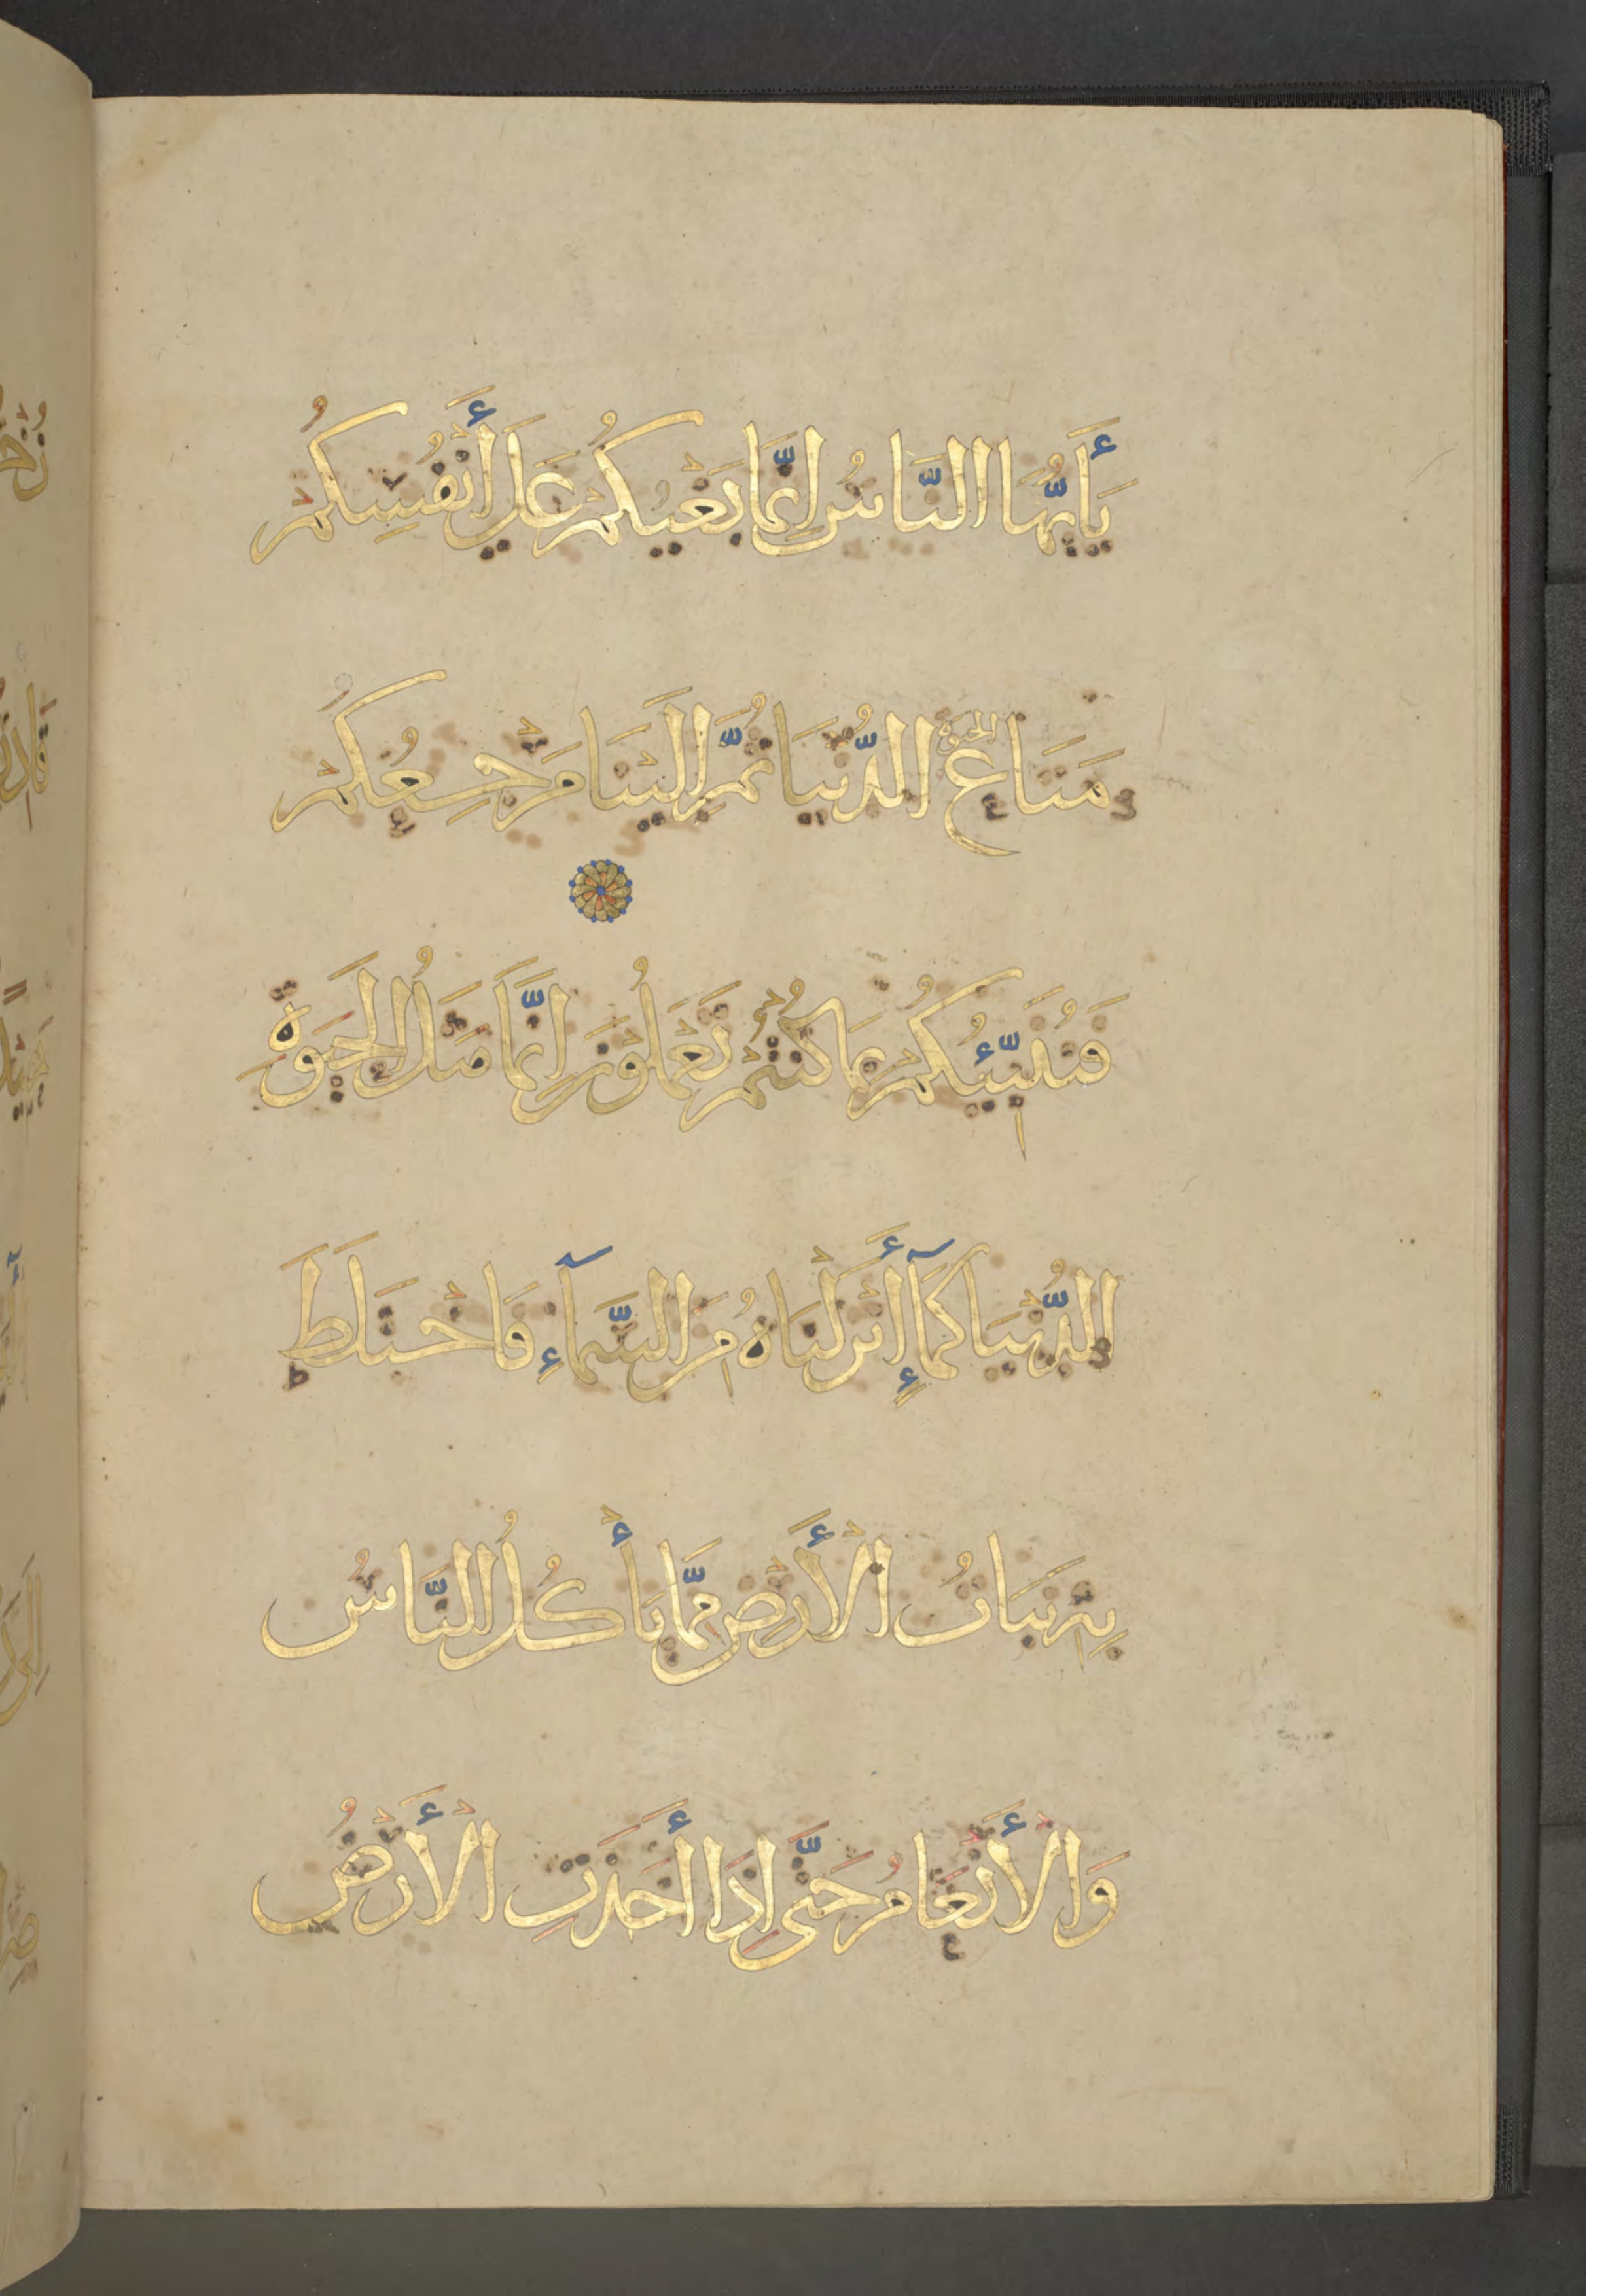 يَأَيُّهَا النَّاسُ إِنَّمَا بَغْيُكُمُ عَلَى أَنْفُسِكُمُ
مَتَاعَ الحَيَوةِ الدُّنْيَا ثُمَّ إِلَيْنَا مَرْجِعُكُمُ
فَنُنَبِّئُكُمُ بِمَا كُنْتُمُ تَعْمَلُونَ إِنَّمَا مَثَلُ الْحَيَوةِ
الدُّنْيَا كَمَآءٍ أَنْزَلْنَاهُ مِنَ السَّمَآءِ فَاخْتَلَطَ
بِهِ نَبَاتُ الْأَرْضِ مِمَّا يَأْكُلُ النَّاسُ
وَالْأَنْعَامُ حَتَّى إِذَا أَخَذَتِ الْأَرْضُ